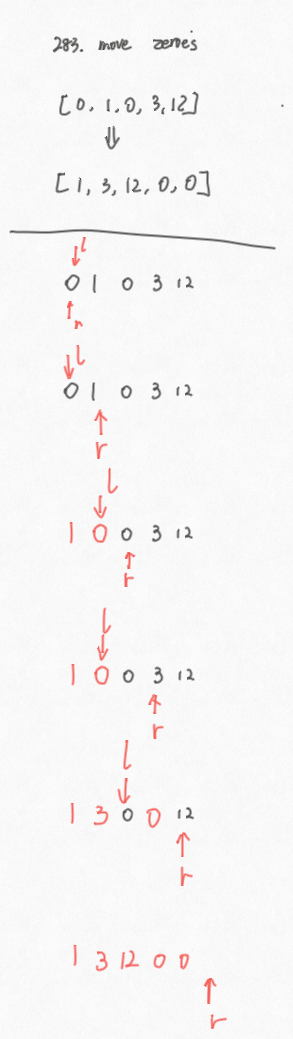 283. move zeroes
[0, 1, 0, 3, 12]
⇓
[1, 3, 12, 0, 0]
l
0 1 0 3 12
r
l
0 1 0 3 12
r
l
1 0 0 3 12
r
l
1 0 0 3 12
r
l
1 3 0 0 12
r
1 3 12 0 0
r